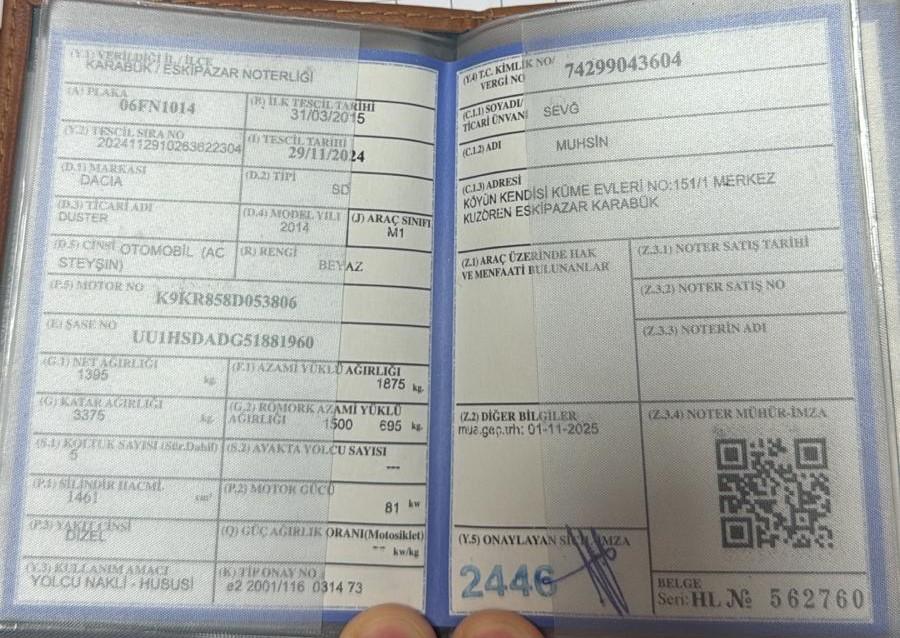 (Y.1) VERİLDİĞİ İL / İLÇE
KARABÜK / ESKİPAZAR NOTERLİĞİ
(A) PLAKA
06FN1014
(B) İLK TESCİL TARİHİ
31/03/2015
(Y.2) TESCİL SIRA NO
2024112910263622304
(I) TESCİL TARİHİ
29/11/2024
(D.1) MARKASI
DACIA
(D.2) TİPİ
SD
(D.3) TİCARİ ADI
DUSTER
(D.4) MODEL YILI
2014
(J) ARAÇ SINIFI
M1
(D.5) CİNSİ OTOMOBİL (AC
STEYŞIN)
(R) RENGİ
BEYAZ
(P.5) MOTOR NO
K9KR858D053806
(E) ŞASE NO
UU1HSDADG51881960
(G.1) NET AĞIRLIĞI
1395 kg.
(F.1) AZAMİ YÜKLÜ AĞIRLIĞI
1875 kg.
(G) KATAR AĞIRLIĞI
3375 kg.
(G.2) RÖMORK AZAMİ YÜKLÜ
AĞIRLIĞI 1500 695 kg.
(S.1) KOLTUK SAYISI (Sür.Dahil)
5
(S.2) AYAKTA YOLCU SAYISI
---
(P.1) SİLİNDİR HACMİ
1461 cm³
(P.2) MOTOR GÜCÜ
81 kw
(P.3) YAKIT CİNSİ
DİZEL
(Q) GÜÇ AĞIRLIK ORANI(Motosiklet)
-- kw/kg
(Y.3) KULLANIM AMACI
YOLCU NAKLİ - HUSUSİ
(K) TİP ONAY NO
e2 2001/116 0314 73
(Y.4) T.C. KİMLİK NO/
VERGİ NO
74299043604
(C.1.1) SOYADI/
TİCARİ ÜNVANI
SEVĞ
(C.1.2) ADI
MUHSİN
(C.1.3) ADRESİ
KÖYÜN KENDİSİ KÜME EVLERİ NO:151/1 MERKEZ
KUZÖREN ESKİPAZAR KARABÜK
(Z.1) ARAÇ ÜZERİNDE HAK
VE MENFAATİ BULUNANLAR
(Z.3.1) NOTER SATIŞ TARİHİ
(Z.3.2) NOTER SATIŞ NO
(Z.3.3) NOTERİN ADI
(Z.2) DİĞER BİLGİLER
mua.geç.trh: 01-11-2025
(Z.3.4) NOTER MÜHÜR-İMZA
(Y.5) ONAYLAYAN SİCİL-İMZA
2446
BELGE
Seri: HL № 562760